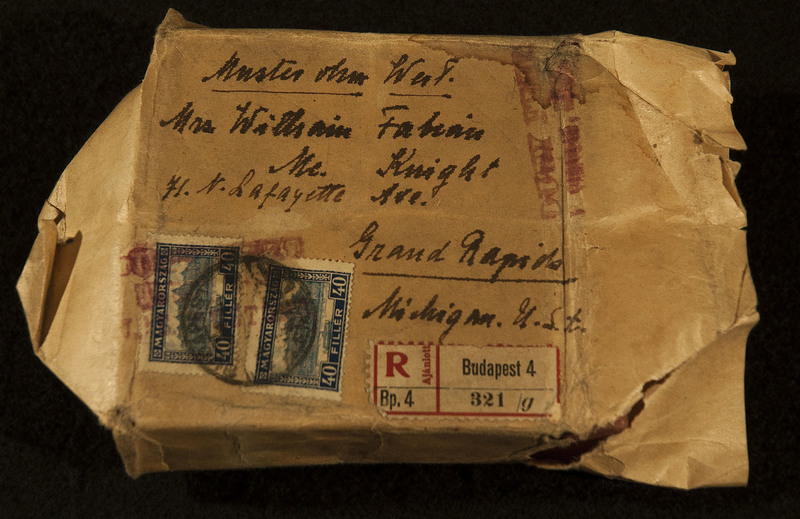 Muster ohne Wert.
Mrs William Fabian
Mc. Knight
71. N. Lafayette Ave.
Grand Rapids
Michigan. U.S.A.
MAGYARORSZÁG
40 FILLÉR 40
MAGYARORSZÁG
40 FILLÉR 40
R Ajánlott
Budapest 4
Bp. 4
321 /g